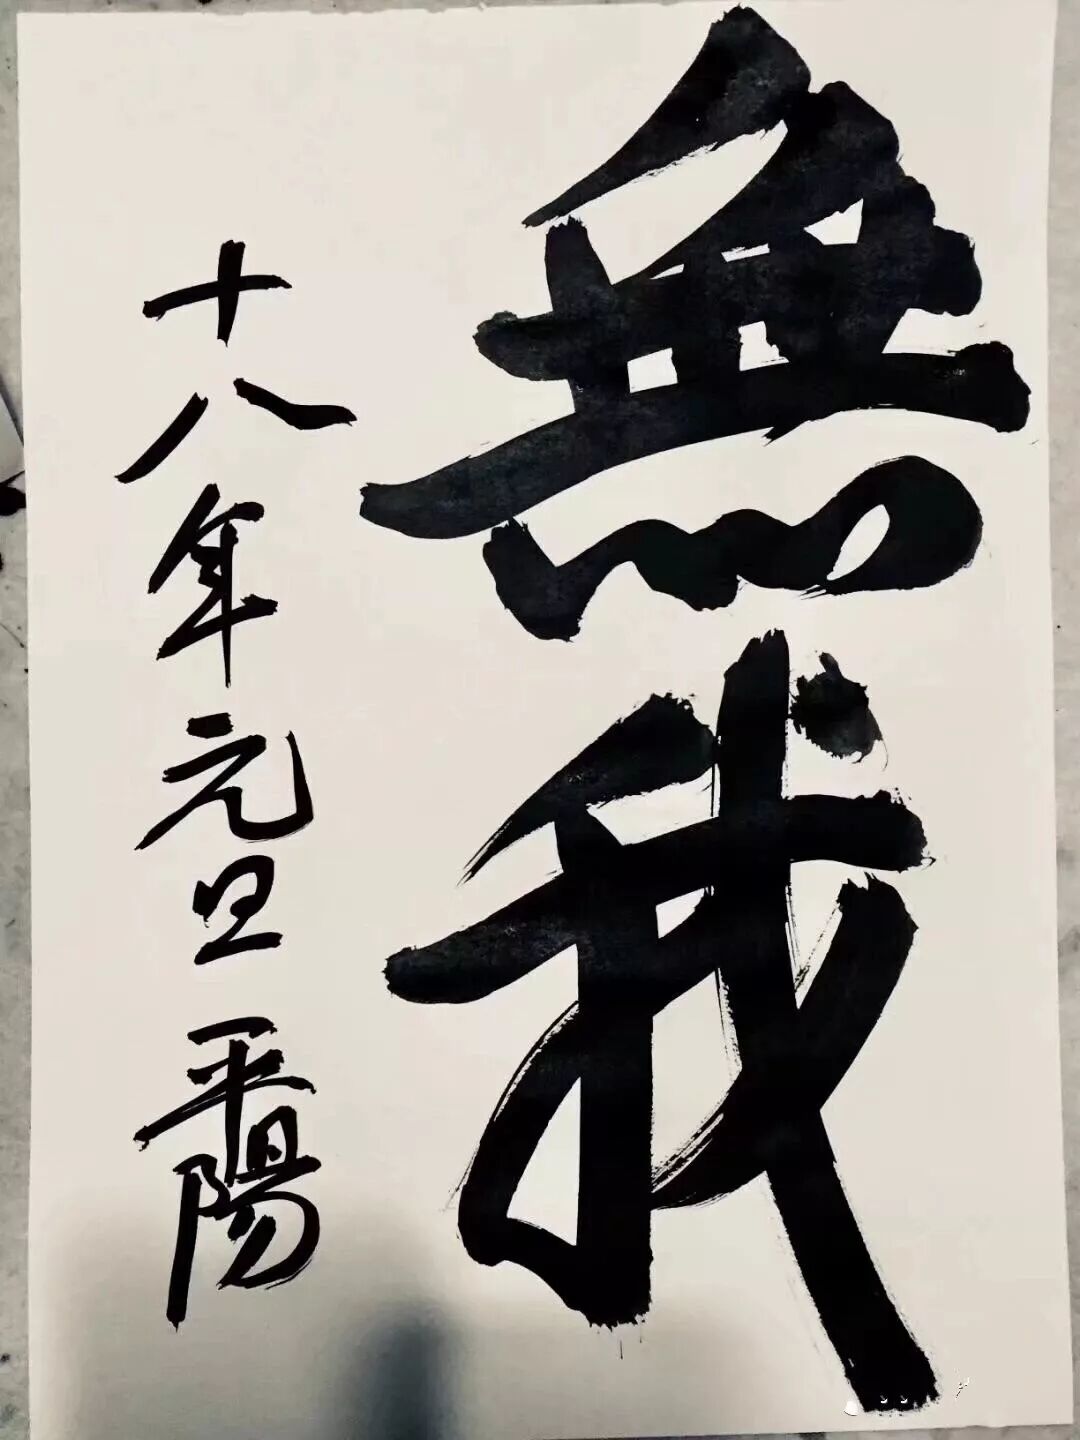 無我
十八年元旦平陽